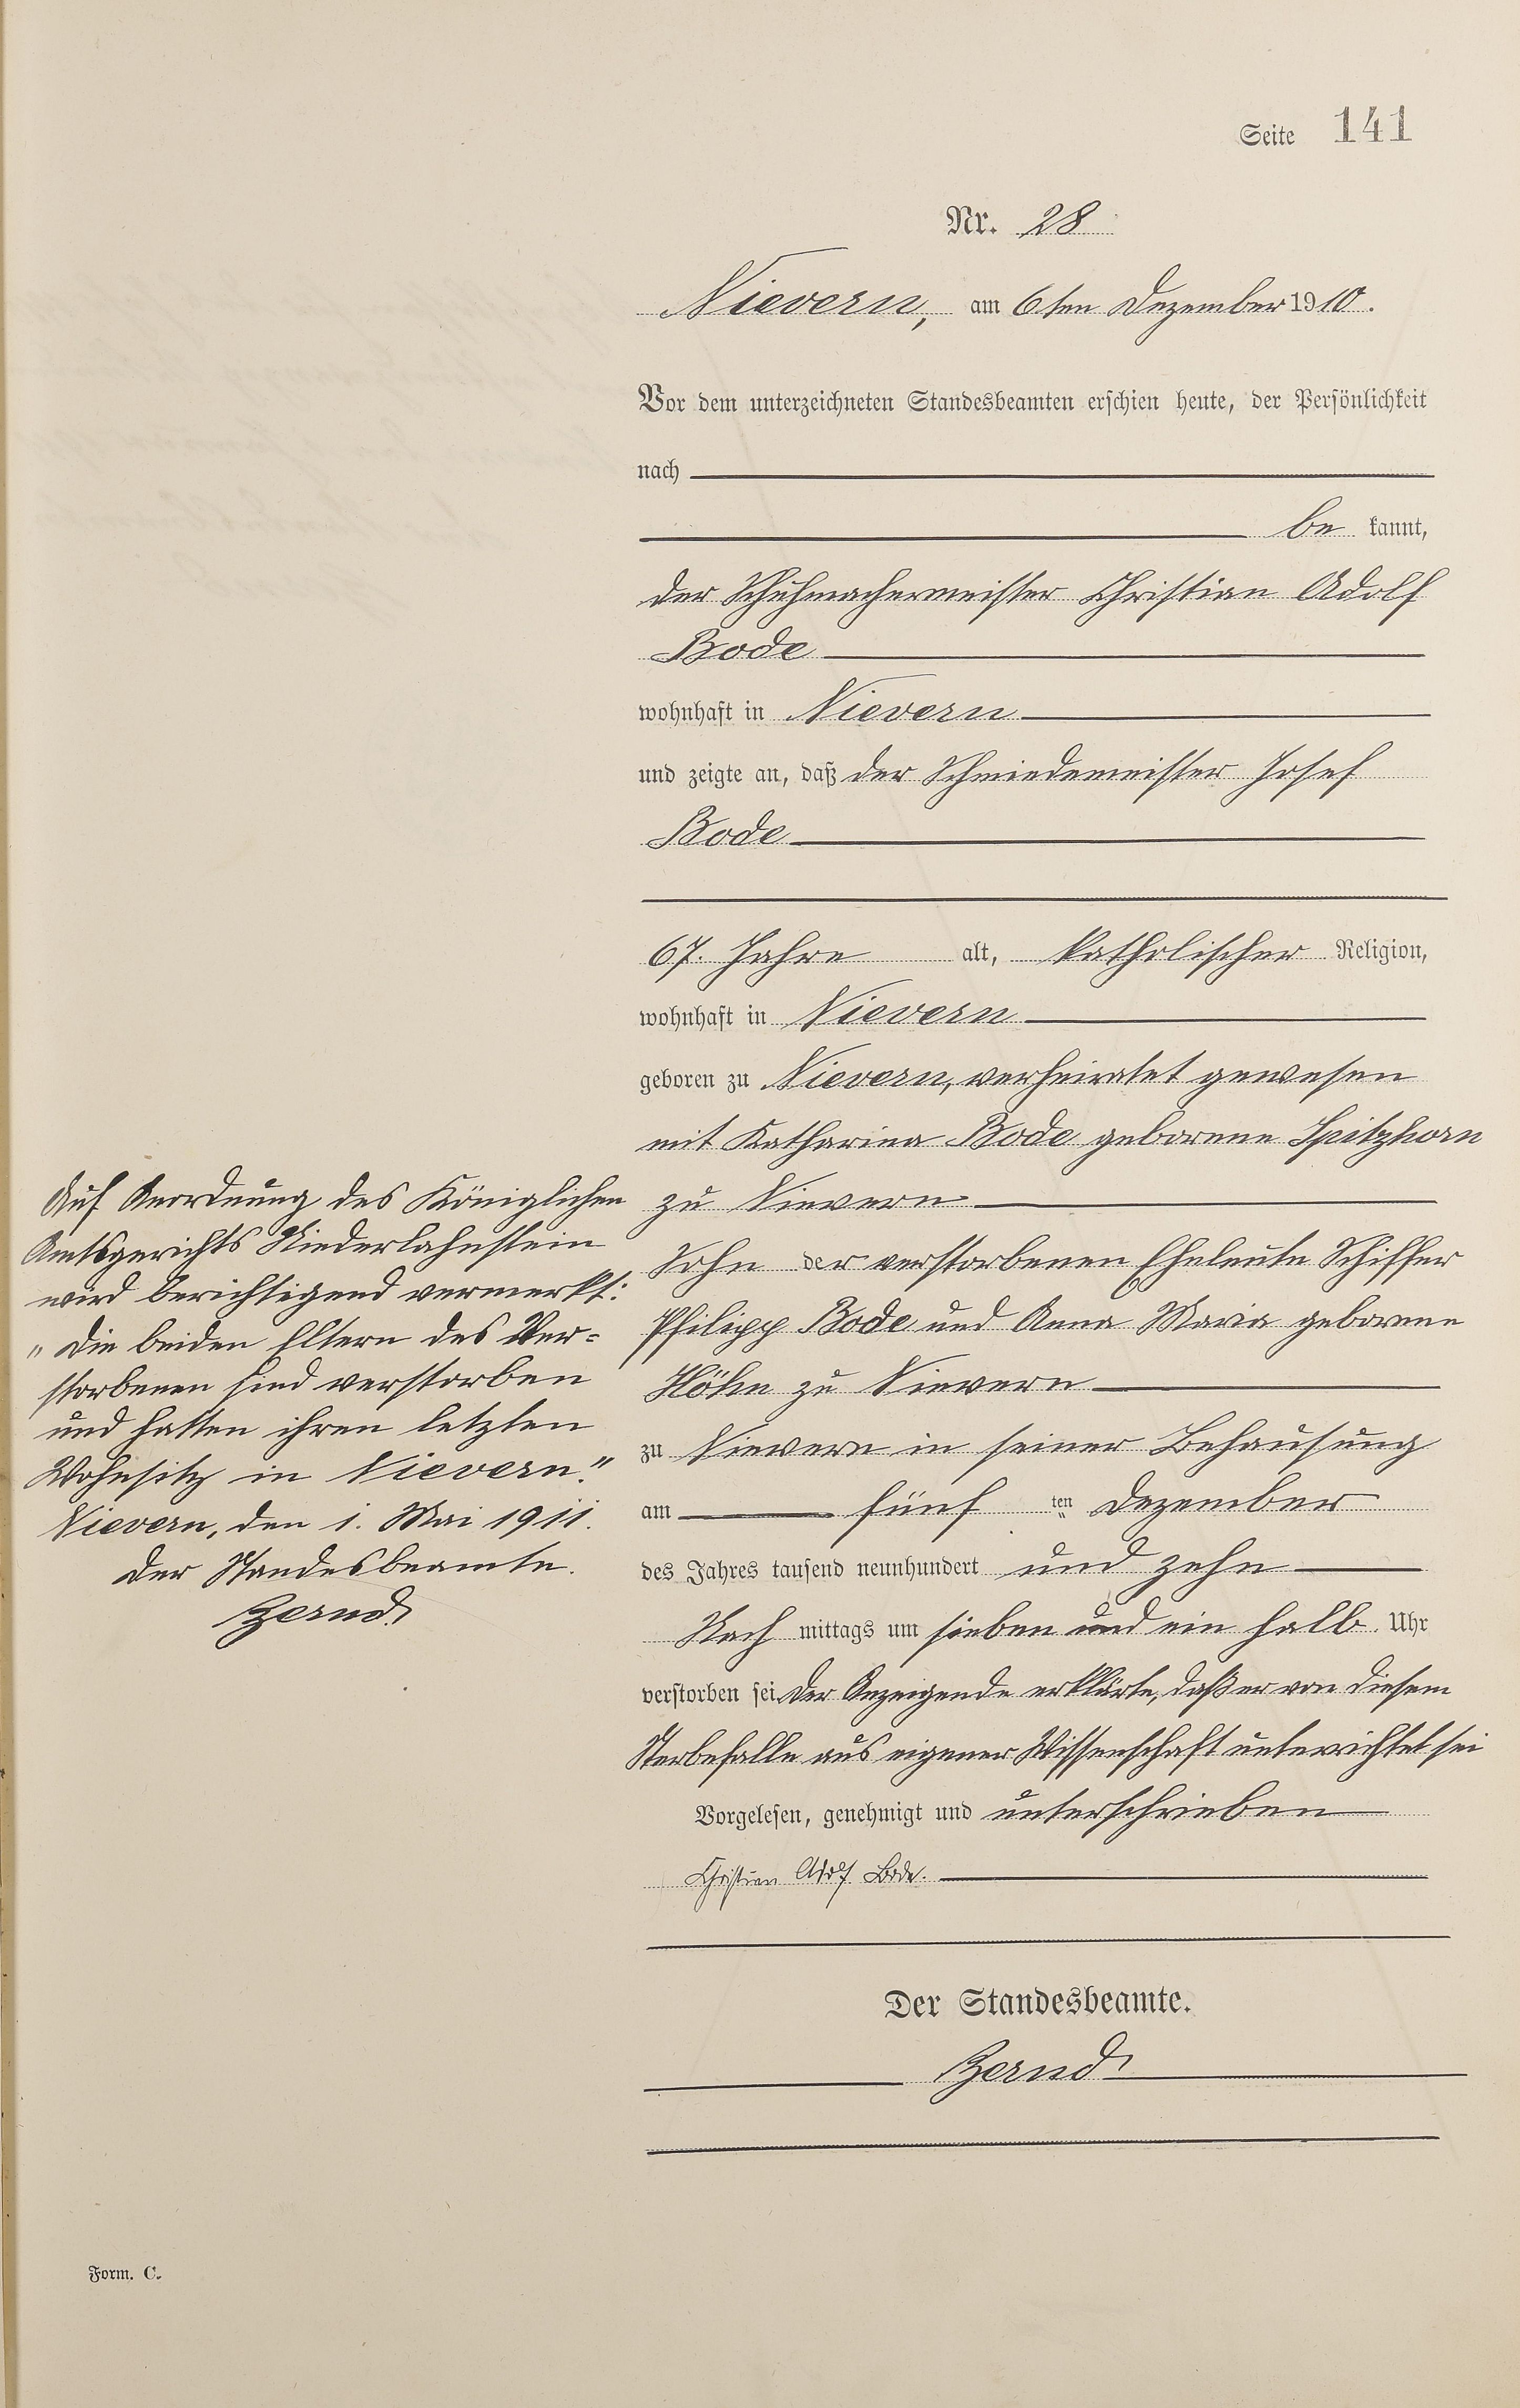 Seite 141
Nr. 28
Nievern, am 6ten Dezember 1910.
Vor dem unterzeichneten Standesbeamten erschien heute, der Persönlichkeit
nach
be kannt,
der Schuhmachermeister Christian Adolf
Bode
wohnhaft in Nievern
und zeigte an, daß der Schmiedemeister Josef
Bode
67. Jahre alt, katholischer Religion,
wohnhaft in Nievern
geboren zu Nievern, verheiratet gewesen
mit Katharina Bode geborene Spitzhorn
zu Nievern
Sohn der verstorbenen Eheleute Schiffer
Philipp Bode und Anna Maria geborene
Höhn zu Nievern
zu Nievern in seiner Behausung
am fünf ten Dezember
des Jahres tausend neunhundert und zehn
Nach mittags um sieben und ein halb Uhr
verstorben sei. Der Anzeigende erklärte, daß er von diesem
Sterbefalle aus eigener Wissenschaft unterrichtet sei
Vorgelesen, genehmigt und unterschrieben
Christian Adolf Bode.
Der Standesbeamte.
Zernd
Auf Anordnung des Königlichen
Amtsgerichts Niederlahnstein
wird berichtigend vermerkt:
„Die beiden Eltern des Ver=
storbenen sind verstorben
und hatten ihren letzten
Wohnsitz in Nievern."
Nievern, den 1. Mai 1911.
Der Standesbeamte.
Zernd
Form. C.